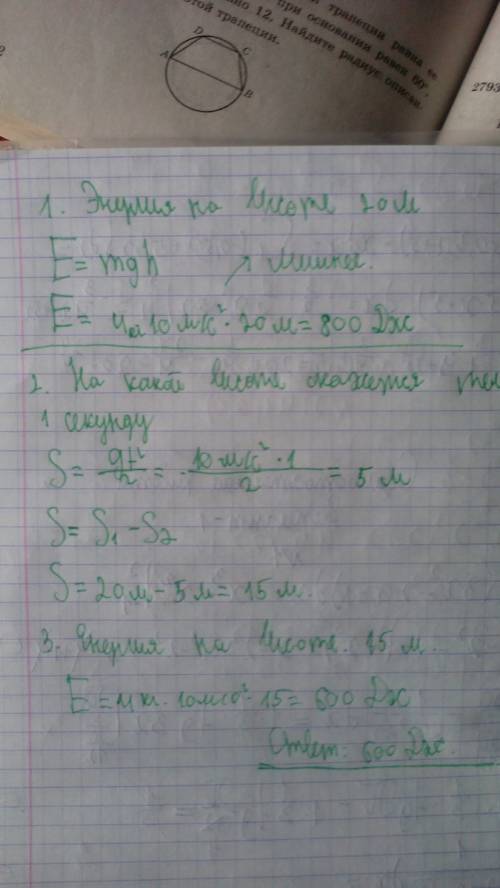 трапеции равна ее
при основании равен 60°,
но 12. Найдите радиус описан
этой трапеции.
D
A
C
B
2793
1. Энергия на высоте 20 м
E = mgh
E = 4 кг 10 м/с² · 20 м = 800 Дж
2. На какой высоте окажется тел
1 секунду
S = gt²/2 = 10 м/с² · 1/2 = 5 м
S = S₁ - S₂
S = 20 м - 5 м = 15 м.
3. Энергия на высоте 15 м.
E = 4 кг · 10 м/с² · 15 = 600 Дж
Ответ: 600 Дж.